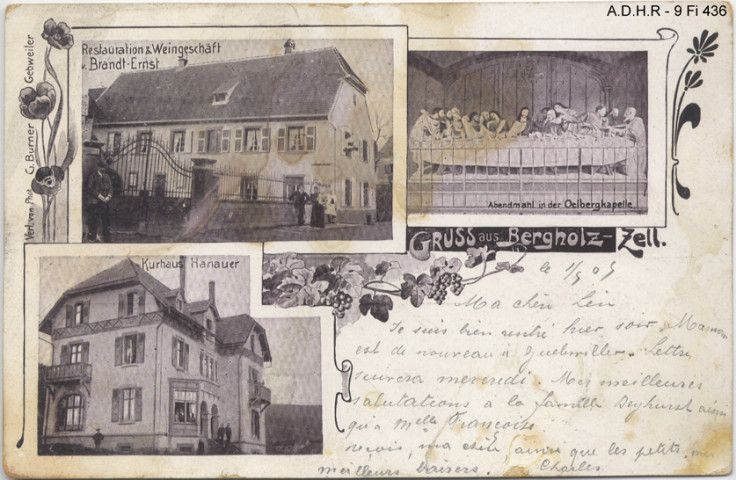 A.D.H.R - 9 Fi 436
Restauration & Weingeschäft
v. Brandt-Ernst
Verl. von Phot. G. Burner Gebweiler
Abendmahl in der Oelbergkapelle.
GRUSS aus Bergholz-Zell.
Kurhaus Hanauer
le
Ma chère
Je suis bien rentré hier soir. Maman
est de nouveau à Guebwiller. Lettre
suivra mercredi. Mes meilleures
salutations à la famille ainsi
qu'à Melle Françoise
reçois, ma chère, ainsi que les petits, mes
meilleurs baisers. Charles